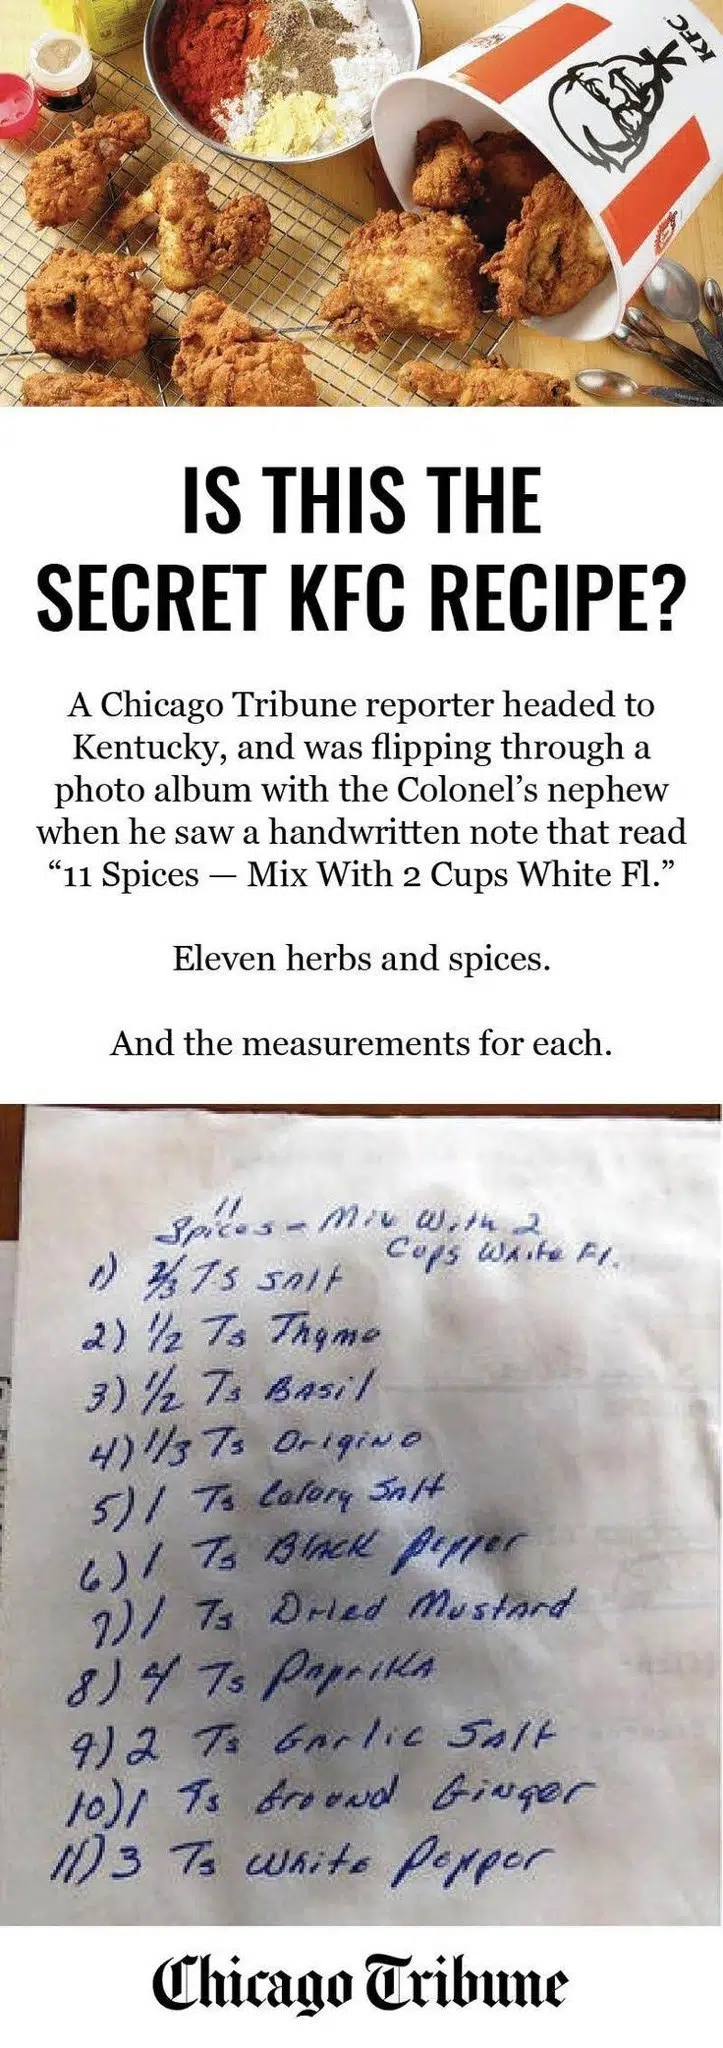 KFC
IS THIS THE
SECRET KFC RECIPE?
A Chicago Tribune reporter headed to
Kentucky, and was flipping through a
photo album with the Colonel’s nephew
when he saw a handwritten note that read
“11 Spices — Mix With 2 Cups White Fl.”
Eleven herbs and spices.
And the measurements for each.
11
Spices - Mix With 2
Cups White Fl.
1) 2/3 Ts Salt
2) 1/2 Ts Thyme
3) 1/2 Ts Basil
4) 1/3 Ts Origino
5) 1 Ts Celery Salt
6) 1 Ts Black Pepper
7) 1 Ts Dried Mustard
8) 4 Ts Paprika
9) 2 Ts Garlic Salt
10) 1 Ts Ground Ginger
11) 3 Ts White Pepper
Chicago Tribune